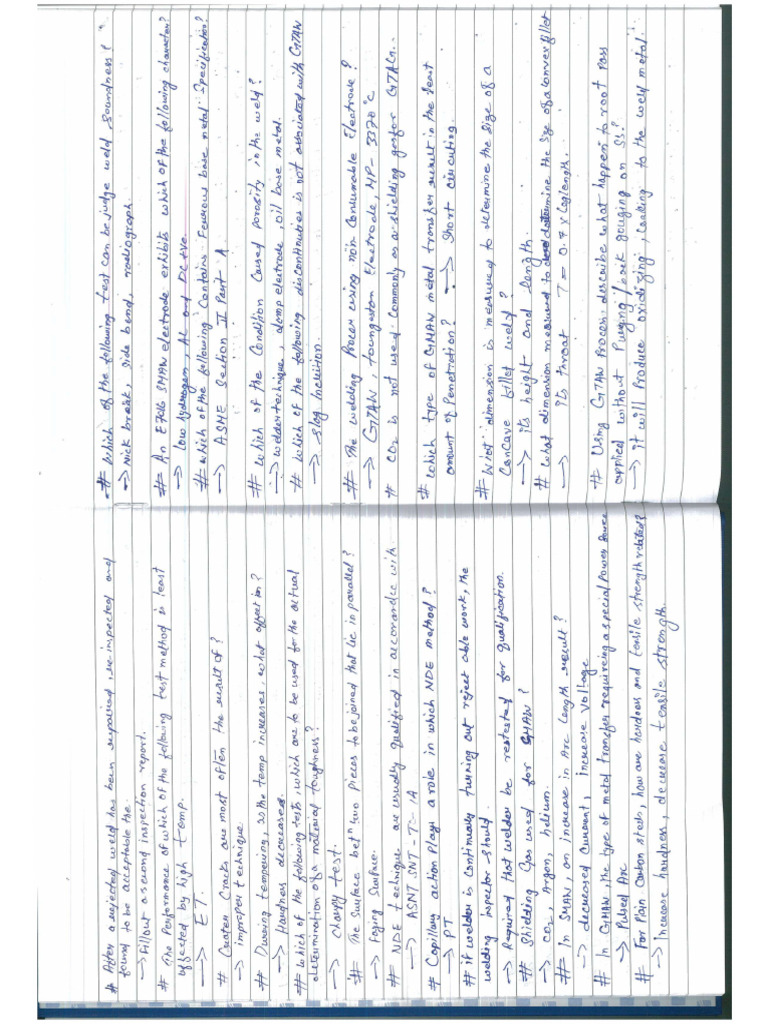 # After a rejected weld has been repaired, re-inspected and
found to be acceptable the.
→ Fillout a second inspection report.
# The Performance of which of the following test method is least
affected by high temp.
→ ET.
# Crater Cracks are most often the result of?
→ improper technique.
# During tempering, as the temp increases, what effect in?
→ Hardness decreases.
# Which of the following tests, which are to be used for the actual
determination of a material toughness?
→ Charpy test.
# The Surface betn two pieces to be joined that lie in parallel?
→ Faying Surface.
# NDE technique are usually qualified in accorandce with.
→ ASNT SNT-TC-1A
# Capillary action plays a role in which NDE method?
→ PT
# if welder is continually turning out reject able work, the
welding inspector should.
→ Required that welder be restested for qualification.
# Shielding Gas used for GMAW?
→ CO2, Argon, helium.
# In SMAW, an increase in Arc length result?
→ decreased Current, increase Voltage
# In GMAW, the type of metal transfer requireing a special Power Source
→ Pulsed Arc
# For Plain Carbon steels, how are hardness and tensile strength related?
→ Increase hardness, decrease tensile strength.
# Which of the following test can be judge weld soundness?
→ Nick break, side bend, radiograph.
# An E7016 SMAW electrode exhibits which of the following character?
→ Low hydrogen, AC and DC+ve.
# which of the following Contains Ferrous base metal Specification?
→ ASME Section II Part A
# which of the Condition Caused porosity in the weld?
→ welder technique, damp electrode, oil base metal.
# which of the following discontinuities is not associated with GTAW
→ Slag inclution.
# The welding Process using non Consumable Electrode?
→ GTAW, Toungeston Electrode, MP- 3370°c
# CO2 is not used Commonly as a shielding gas for GTAW.
# which type of GMAW metal transfer result in the least
amount of Penetration? → Short circuting.
# Wiat dimension is measured to determine the size of a
Concave fillet weld?
→ its height and length.
# what dimension measured to determine the size of a convex fillet
→ its throat T = 0.7 x Leg length.
# Using GTAW Process describe what happen to root pass
applied without Purging/back gouging on SS?
→ it will Produce oxidizing, Leading to the weld metal.